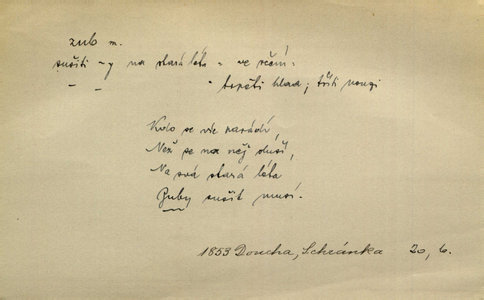 zub m.
sušiti -y na stará léta = ve rčení:
- - - trpěti hlad; tříti nouzi
Kdo se víc parádí,
Než se na něj sluší,
Na svá stará léta
Zuby sušit musí.
1853 Doucha, Schránka 20, 6.